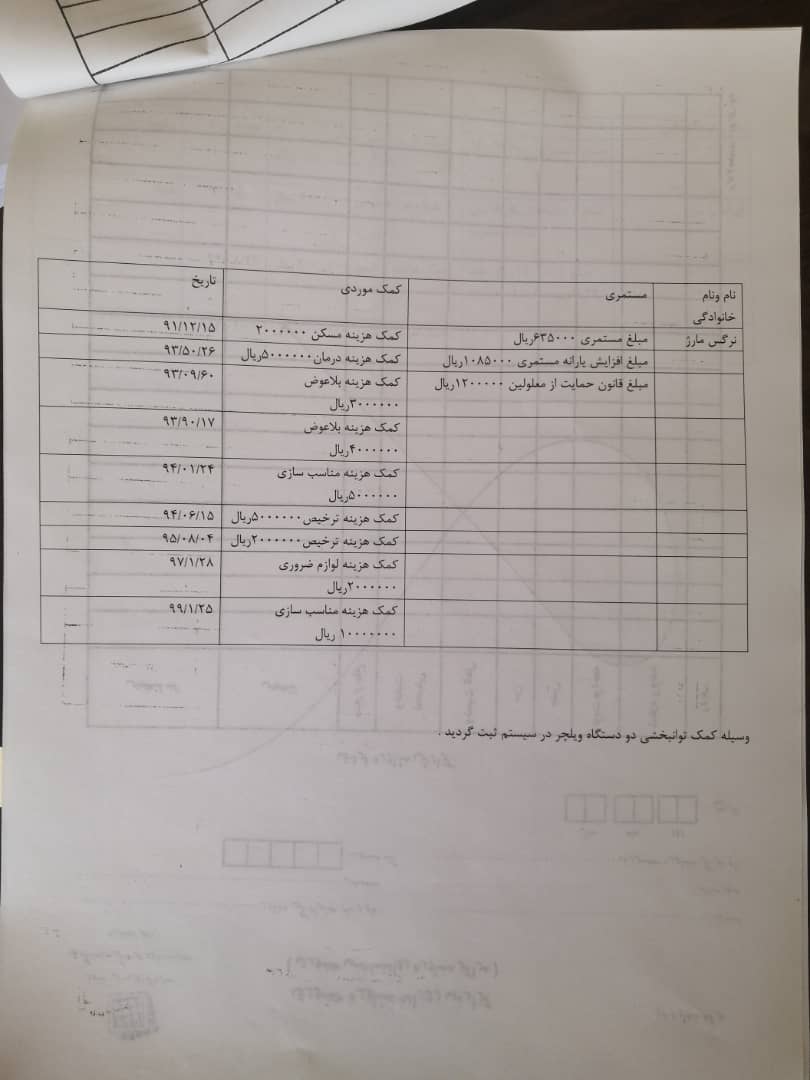 نام ونام خانوادگی	مستمری	کمک موردی	تاریخ
نرگس مارژ	مبلغ مستمری ۶۳۵۰۰۰ریال	کمک هزینه مسکن ۲۰۰۰۰۰۰	۹۱/۱۲/۱۵
مبلغ افزایش یارانه مستمری ۱۰۸۵۰۰۰ریال	کمک هزینه درمان۵۰۰۰۰۰۰ریال	۹۳/۵۰/۲۶
مبلغ قانون حمایت از معلولین ۱۲۰۰۰۰۰ریال	کمک هزینه بلاعوض	۹۳/۰۹/۶۰
۳۰۰۰۰۰۰ریال
کمک هزینه بلاعوض	۹۳/۹۰/۱۷
۴۰۰۰۰۰۰ریال
کمک هزینه مناسب سازی	۹۴/۰۱/۲۴
۵۰۰۰۰۰۰ریال
کمک هزینه ترخیص۵۰۰۰۰۰۰ریال	۹۴/۰۶/۱۵
کمک هزینه ترخیص۲۰۰۰۰۰۰ریال	۹۵/۰۸/۰۴
کمک هزینه لوازم ضروری	۹۷/۱/۲۸
۲۰۰۰۰۰۰ریال
کمک هزینه مناسب سازی	۹۹/۱/۲۵
۱۰۰۰۰۰۰۰ ریال
وسیله کمک توانبخشی دو دستگاه ویلچر در سیستم ثبت گردید .